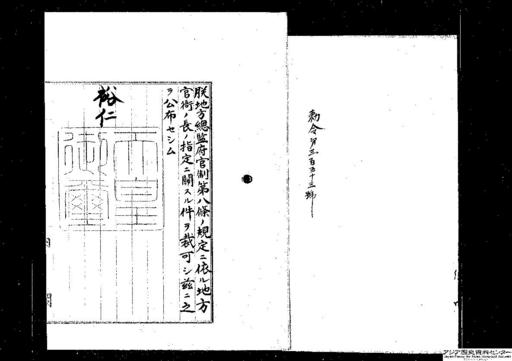 勅令第三百五十三號
朕地方總監府官制第八條ノ規定ニ依ル地方
官衙ノ長ノ指定ニ關スル件ヲ裁可シ茲ニ之
ヲ公布セシム
裕仁
天皇
御璽
内閣
アジア歴史資料センター